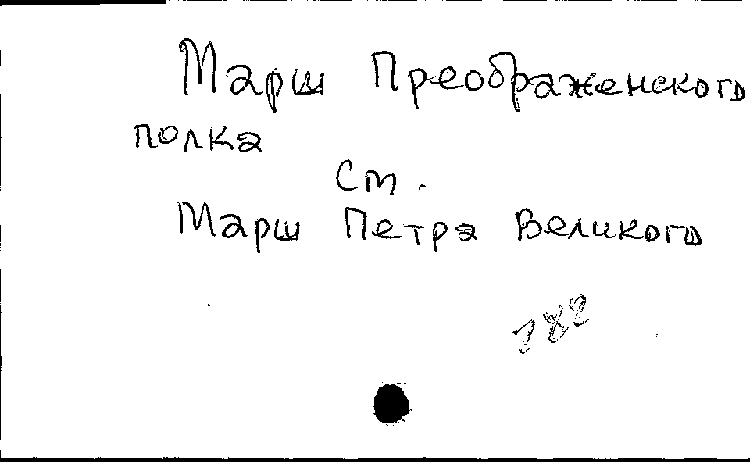 Марш Преображенского
полка
См.
Марш Петра Великого
782